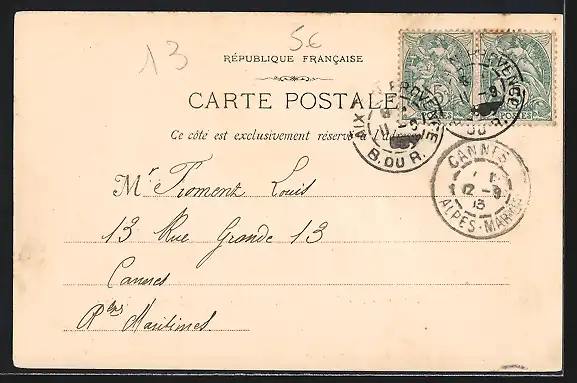 13
5€
RÉPUBLIQUE FRANÇAISE
CARTE POSTALE
Ce côté est exclusivement réservé à l'adresse
AIX PROVENCE
B. DU R.
PROVENCE
DU R.
CANNES
12 - 9
13
ALPES-MARMES
POSTES
Mr Froment Louis
13 Rue Grande 13
Cannes
Alpes Maritimes